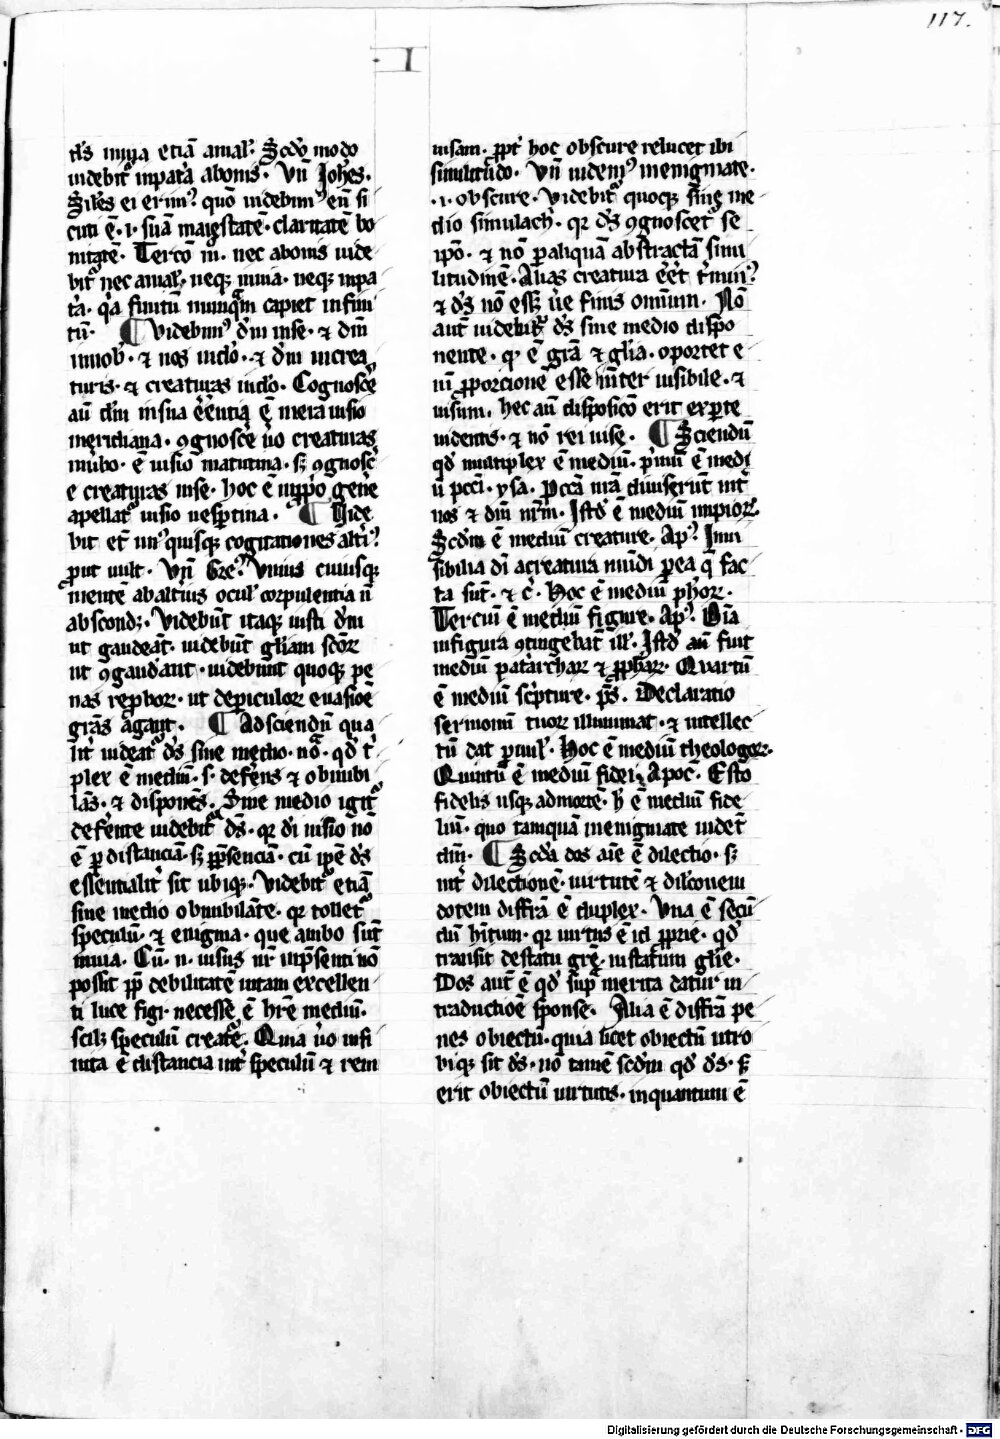 117.
I
tis in uia etiā a mal'. Scd'o modo
uidebit' in pat'a a bonis. Vn̄ Joh'es.
Sil'es ei erim'. quo͞ uidebim' eu͞ si
cuti ē. i. sua͞ maiestate͞. claritate͞ bo
nitate͞. Tercō m̊. nec a bonis uide
bit' nec a mal'. neq; in uia. neq; in pa
t'a. q'a finitu͞ nunqͣm capiet infini
tu͞. ¶ Videbim' d'm in se. ⁊ d'm
in nob'. ⁊ nos in d'o. ⁊ d'm in crea
turis. ⁊ creaturas in d'o. Cognosc'e
au͞ d'm in sua ee͞ntia ē mera uisio
meridiana. ꝯgnosc'e u'o creaturas
in u'bo. ē uisio matutina. sꝫ ꝯgnosc'e
e creaturas in se. hoc ē in ꝓp'o gen'e
apellat' uisio uesp͞tina. ¶ Vide
bit et͞ un'quisq; cogitationes alt'i'
ꝓut uult. Vn̄ Gre'. Vnius cuiusq;
mente͞ ab alt'ius ocul' corpulentia n̄
abscond;. Videbu͞t itaq; iusti d'm
ut gaudea͞t. uidebu͞t gl'iam sc͞oꝝ
ut ꝯgaudeant. uidebunt quoq; pe
nas rep̱boꝝ. ut de piculoꝝ euasio͞e
gr͞as agant. ¶ Ad sciendu͞ qua
lit' uideat' d's sine medio. no͞. qd' t'
plex ē mediu͞. s. defe͞ns ⁊ obnubi
la͞s. ⁊ dispone͞s. Sine medio igit'
defe͞nte uidebit' d's. qꝛ d'i uisio no͞
ē ꝑ distancia͞. sꝫ p͞pse͞ncia͞. cu͞ ip̄e d's
essentialit' sit ubiq;. Videbit' etia͞
sine medio obnubila͞te. qꝛ tollet'
speculu͞. ⁊ enigma. que ambo su͞t
in uia. Cu͞. n. uisus nr̄ in p͞senti no͞
possit ꝓp̄ debilitate͞ in tam excellen
ti luce figi. necesse ē h'r͞e mediu͞.
scil; speculu͞ creat'e. Quia u'o infi
nita ē distancia int' speculu͞ ⁊ rem
uisam. ꝓpt' hoc obscure relucet ibi
similitudo. Vn̄ uidem' in enigmate.
.i. obscure. Videbit' quoq; sine me
dio simulach'. qꝛ d's ꝯgnoscet' se
ip̄o. ⁊ no͞ ꝑ aliqua͞ abstracta͞ simi
litudine͞. Alias creatura e͞et t'min'
⁊ d's no͞ ess; u'e finis omniu͞. No͞
aut͞ uidebit' d's sine medio dispo
nente. qd' ē gr͞a ⁊ gl'ia. oportet e
ni͞ ꝓporcione͞ esse int'er uisibile. ⁊
uisum. hec au͞ disposic͞o erit ex ꝑte
uidentis. ⁊ no͞ rei uise. ¶ Sciendu͞
qd' multiplex ē mediu͞. p'mu͞ ē medi
u͞ pcc͞i. ysa. Pcc͞a nr͞a diuiseru͞t int'
nos ⁊ d'm nr͞m. Istd' ē mediu͞ impioꝝ.
Scd'm ē mediu͞ creature. Ap'. Inui
sibilia d'i a creatura mu͞di ꝑ ea q̄ fac
ta su͞t. ⁊ c'. Hoc ē mediu͞ ph'oꝝ.
Terciu͞ ē mediu͞ figure. Ap'. Om͞ia
in figura ꝯtingebat ill'. Istd' au͞ fuit
mediu͞ pat'archarꝝ ⁊ ꝓph'arꝝ. Quartu͞
ē mediu͞ sc'pture. ps̄. Declaratio
sermonu͞ tuoꝝ illuminat. ⁊ intellec
tu͞ dat p̱uul'. Hoc ē mediu͞ theologoꝝ.
Quintu͞ ē mediu͞ fidei. Apoc̄. Esto
fidelis usq; ad morte͞. h' ē mediu͞ fide
liu͞. quo tamqua͞ in enigmate uide͞t
d'm. ¶ Scd'a dos ai͞e ē dilectio. sꝫ
int' dilectione͞. uirtute͞ ⁊ dil'c͞onem
dotem diff'r͞a ē duplex. Vna ē secu͞
du͞ h'itum. qꝛ uirtus ē id ꝓprie. qd'
transit de statu gr͞e. in statum gl'ie.
Dos aut͞ ē qd' sup' merita datur in
traductio͞e sponse. Alia ē diff'r͞a pe
nes obiectu͞. quia licet obiectu͞ utro
biq; sit d's. no͞ tame͞ scd'm qd' d's. s;
erit obiectu͞ uirtutis. inquantum ē
Digitalisierung gefördert durch die Deutsche Forschungsgemeinschaft - DFG